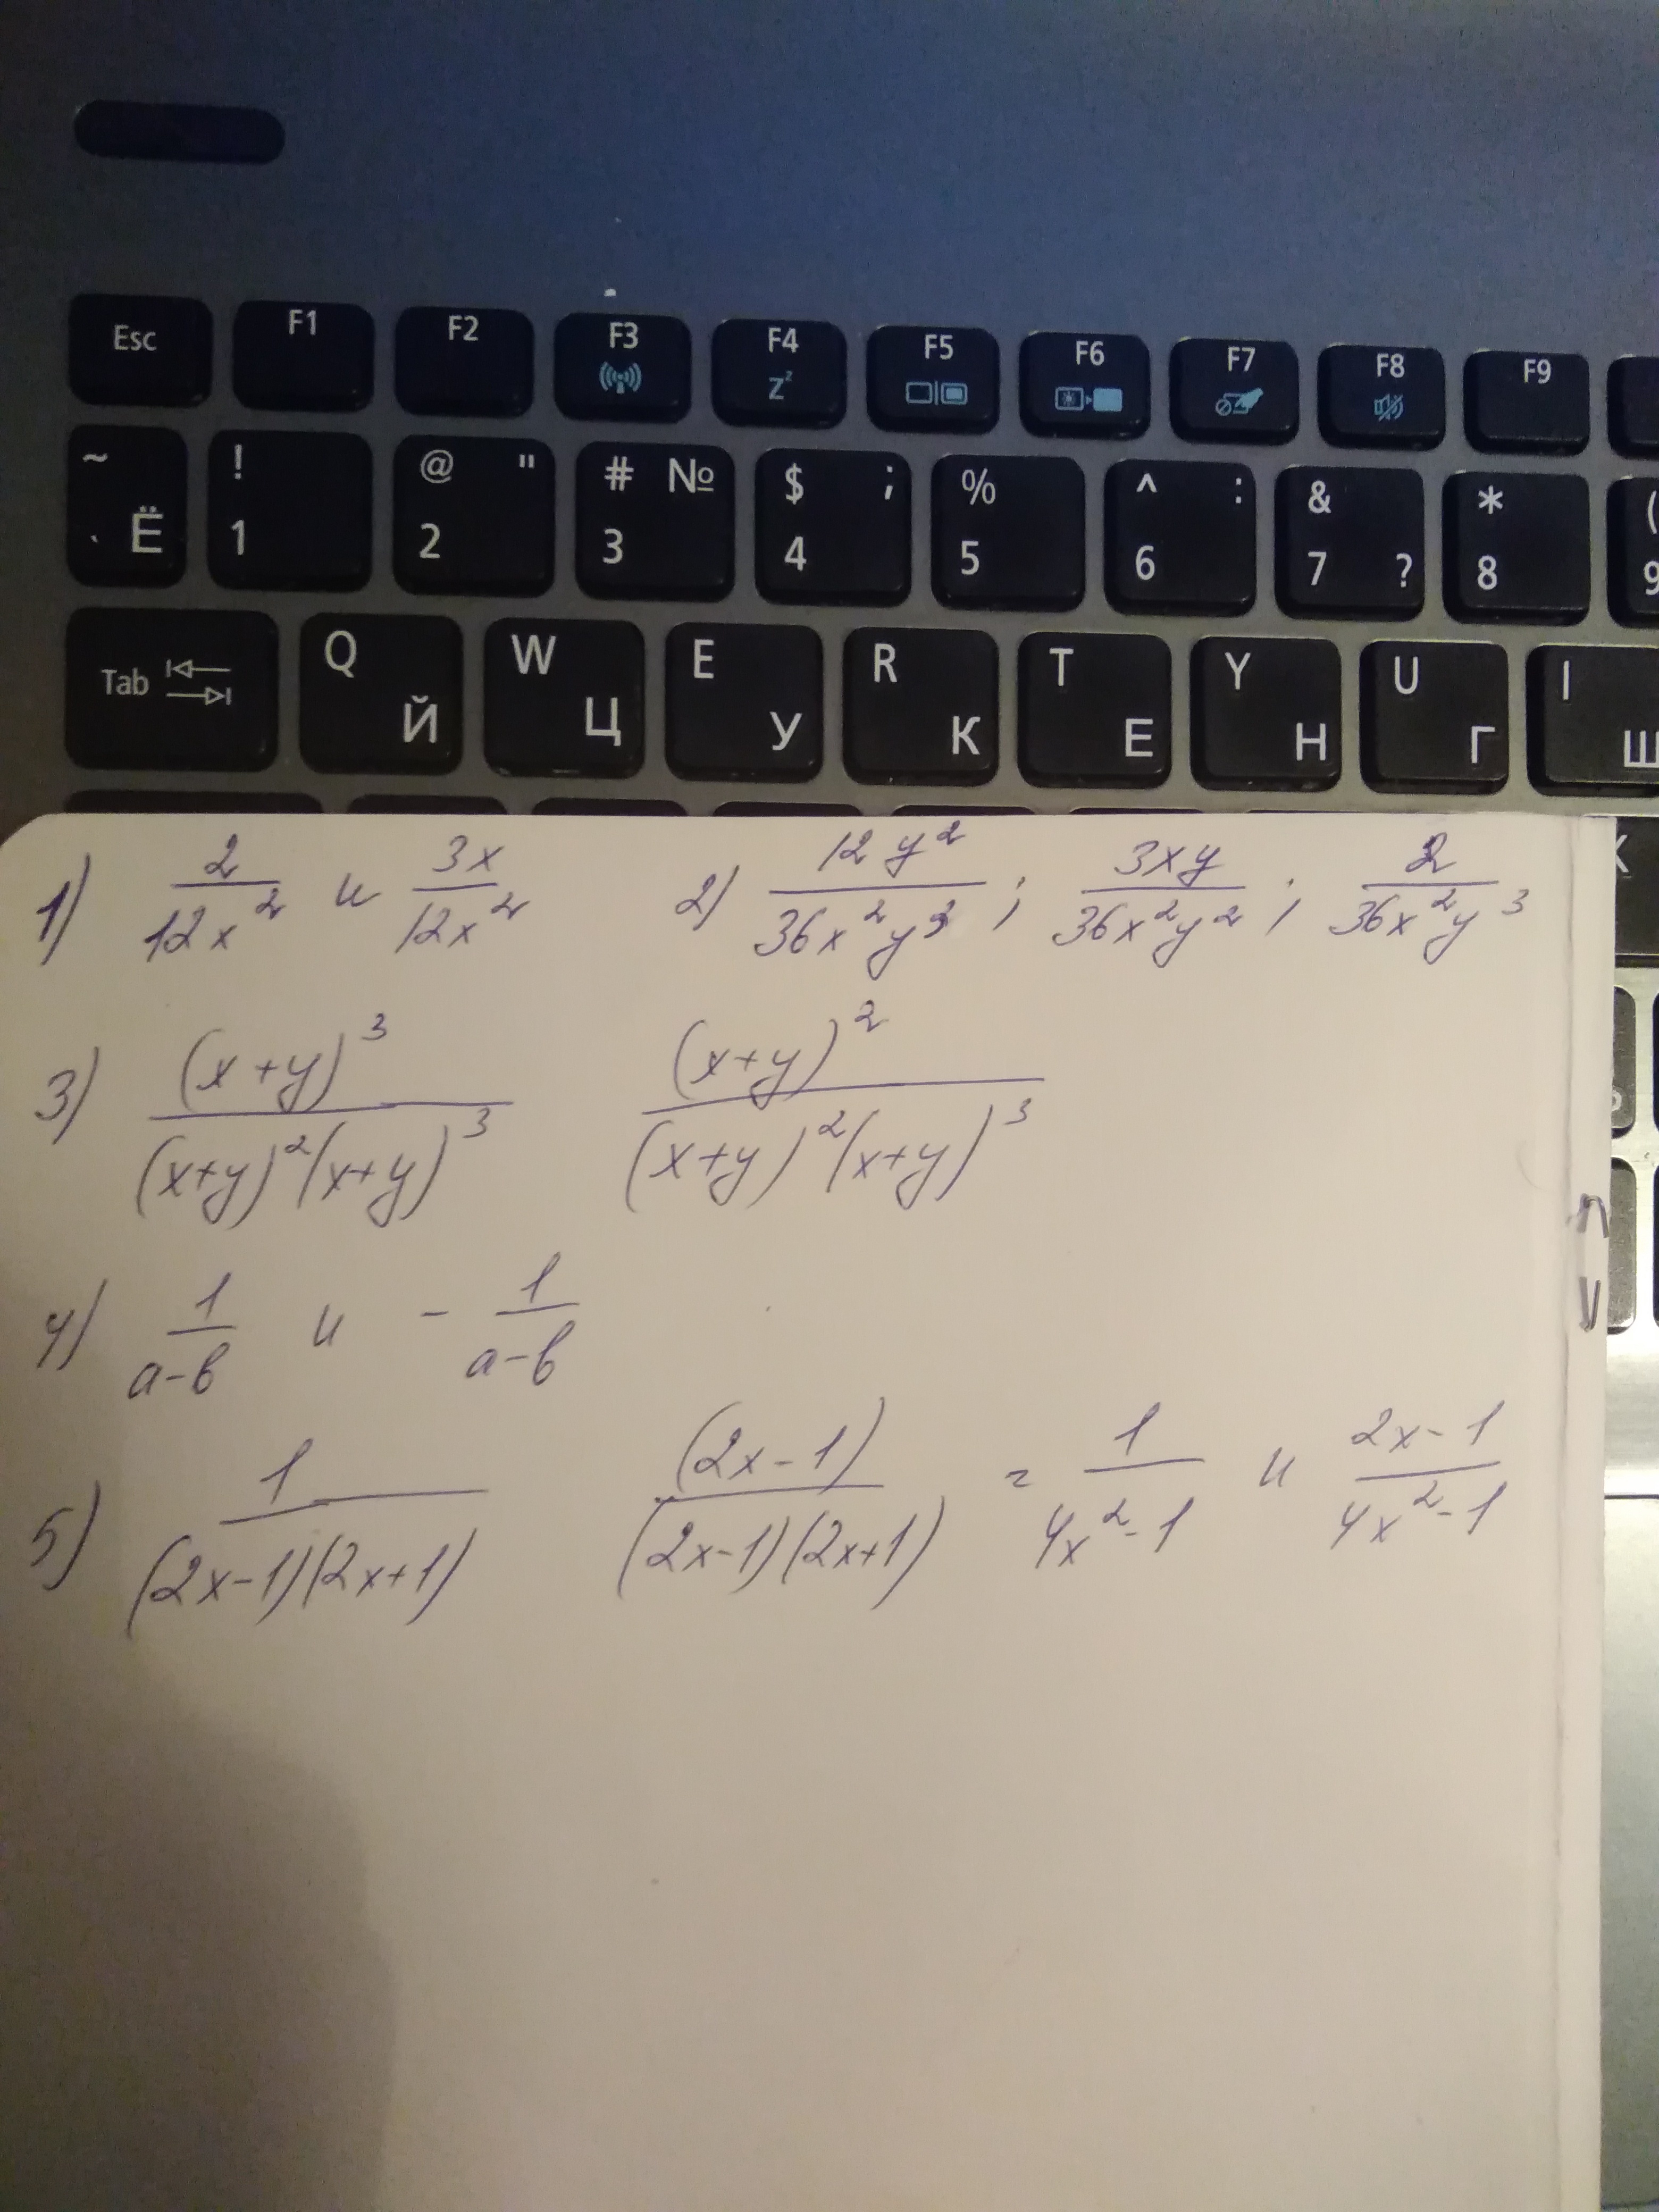 Esc F1 F2 F3 F4 Zz F5 F6 F7 F8 F9
~ ` Ё ! 1 @ " 2 # № 3 $ ; 4 % 5 ^ : 6 & 7 ? * 8 ( 9
Tab Q Й W Ц E У R К T Е Y Н U Г I Ш
1) 2/12x² и 3x/12x² 2) 12y²/36x²y³ ; 3xy/36x²y² ; 2/36x²y³
3) (x+y)³/(x+y)²(x+y)³ (x+y)²/(x+y)²(x+y)³
4) 1/a-b и - 1/a-b
5) 1/(2x-1)(2x+1) (2x-1)/(2x-1)(2x+1) = 1/4x²-1 и 2x-1/4x²-1